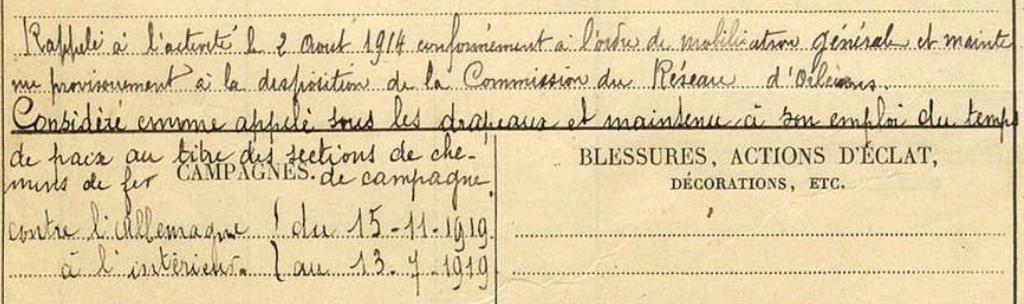 Rappelé à l'activité le 2 Aout 1914 conformément à l'ordre de mobilisation générale et mainte
nu provisoirement à la disposition de la Commission du Réseau d'Orléans.
Considéré comme appelé sous les drapeaux et maintenu à son emploi du temps
de paix au titre des sections de che-
mins de fer de campagne.
CAMPAGNES.
contre l'Allemagne } du 15-11-1919.
à l'intérieur. } au 13-7-1919
BLESSURES, ACTIONS D'ÉCLAT,
DÉCORATIONS, ETC.